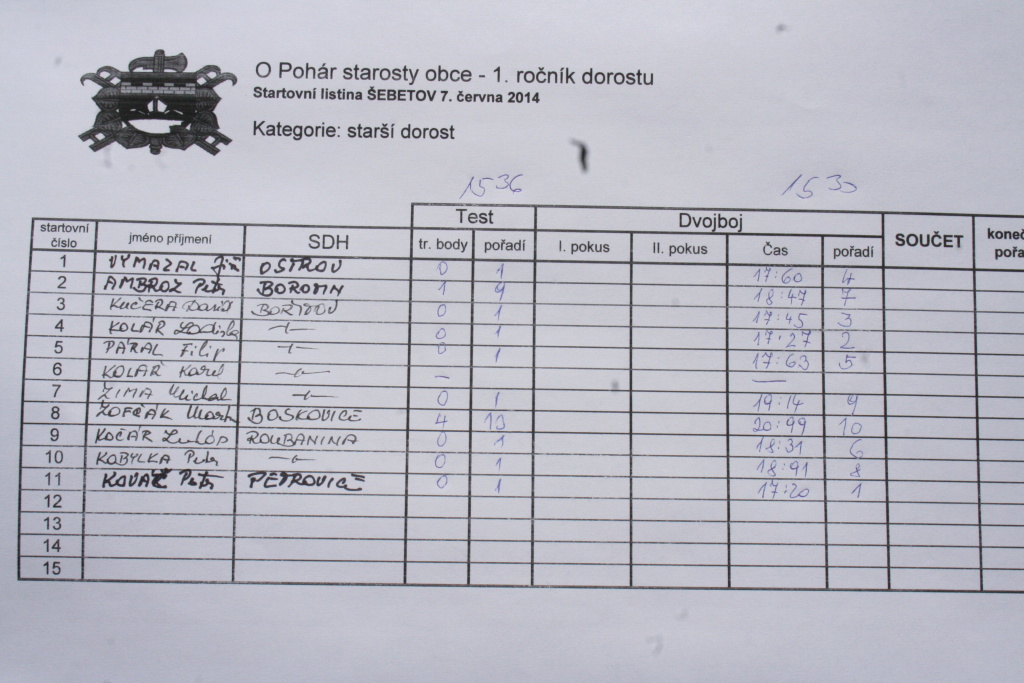 O Pohár starosty obce - 1. ročník dorostu
Startovní listina ŠEBETOV 7. června 2014
Kategorie: starší dorost
15 36 15 30
Test Dvojboj
startovní číslo jméno příjmení SDH tr. body pořadí I. pokus II. pokus Čas pořadí SOUČET
1 VYMAZAL Jiří OSTROV 0 1 17:60 4
2 AMBROZ Petr 1 9 18:47 7
3 KUČERA David 0 1 17:45 3
4 KOLÁŘ 0 1 17:27 2
5 PÁRAL Filip 0 1 17:63 5
6 KOLÁŘ Karel — —
7 ZIMA Michal 0 1 19:14 9
8 BOSKOVICE 4 13 20:99 10
9 KOČÁR ROUBANINA 0 1 18:31 6
10 KOBYLKA Petr 0 1 18:91 8
11 KOVÁŘ Petr PETROVICE 0 1 17:20 1
12
13
14
15